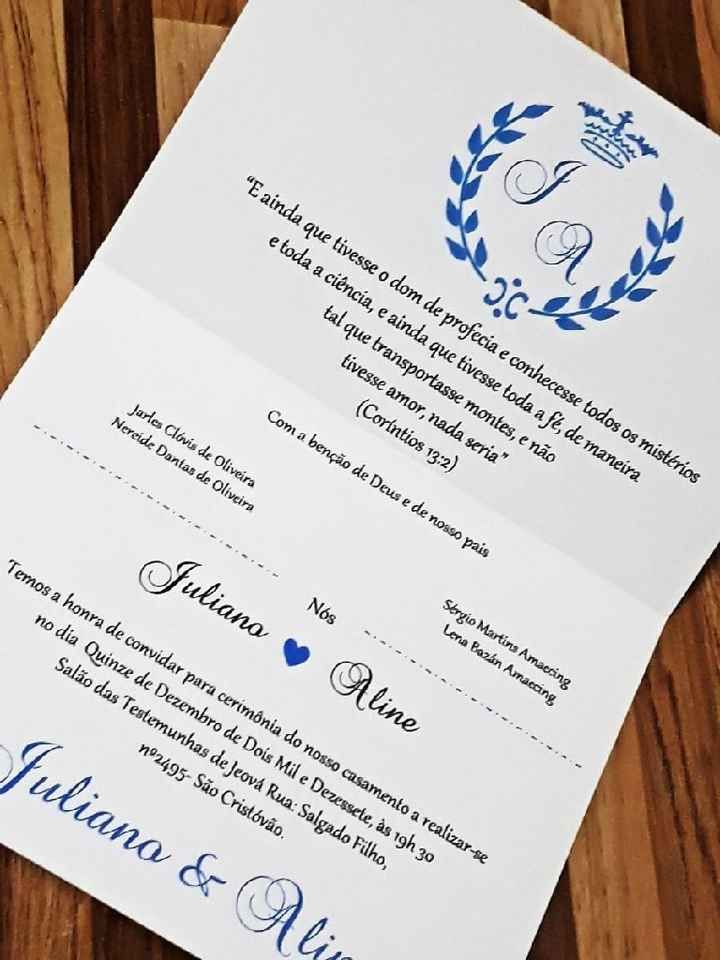 J
A
"E ainda que tivesse o dom de profecia e conhecesse todos os mistérios
e toda a ciência, e ainda que tivesse toda a fé, de maneira
tal que transportasse montes, e não
tivesse amor, nada seria"
(Coríntios 13:2)
Com a benção de Deus e de nosso pais
Jarles Clóvis de Oliveira
Nereide Dantas de Oliveira
Sérgio Martins Amaecing
Lena Bazán Amaecing
Nós
Juliano
Aline
Temos a honra de convidar para cerimônia do nosso casamento a realizar-se
no dia Quinze de Dezembro de Dois Mil e Dezessete, às 19h 30
Salão das Testemunhas de Jeová Rua: Salgado Filho,
nº2495- São Cristóvão.
Juliano & Aline